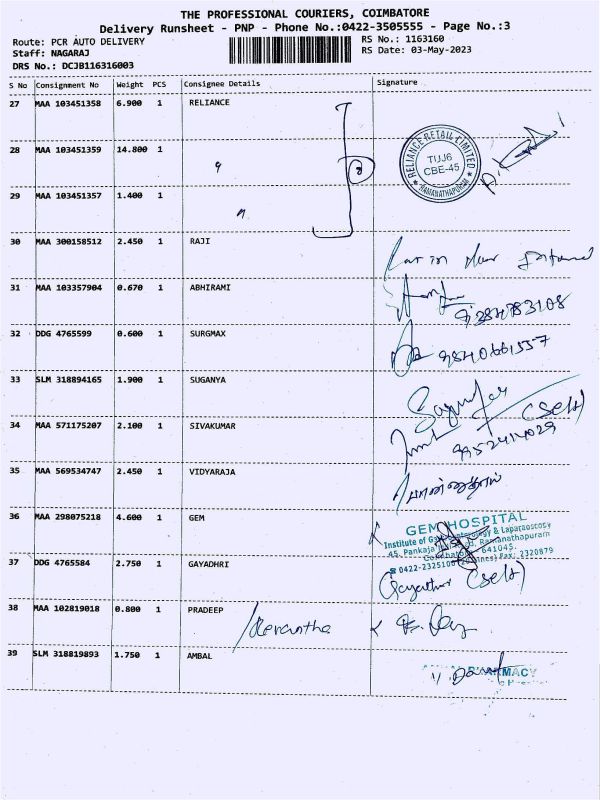 THE PROFESSIONAL COURIERS, COIMBATORE
Delivery Runsheet - PNP - Phone No.:0422-3505555 - Page No.:3
Route: PCR AUTO DELIVERY RS No.: 1163160
Staff: NAGARAJ RS Date: 03-May-2023
DRS No.: DCJB116316003
S No Consignment No Weight PCS Consignee Details Signature
27 MAA 103451358 6.900 1 RELIANCE
28 MAA 103451359 14.800 1
RELIANCE RETAIL LIMITED
TUJ6
CBE-45
★ RAMANATHAPURAM ★
29 MAA 103451357 1.400 1
30 MAA 300158512 2.450 1 RAJI
31 MAA 103357904 0.670 1 ABHIRAMI
9384783108
32 DDG 4765599 0.600 1 SURGMAX
9840661557
33 SLM 318894165 1.900 1 SUGANYA
(Self)
34 MAA 571175207 2.100 1 SIVAKUMAR
9952414029
35 MAA 569534747 2.450 1 VIDYARAJA
36 MAA 298075218 4.600 1 GEM
GEM HOSPITAL
Institute of Gastroenterology & Laparaoscosy
45, Pankaja Ramanathapuram
Coimbatore - 641045.
☎ 0422-2325100 Fax: 2320879
37 DDG 4765584 2.750 1 GAYADHRI
Gayathri (Self)
38 MAA 102819018 0.800 1 PRADEEP
Revantha
39 SLM 318819893 1.750 1 AMBAL
PHARMACY